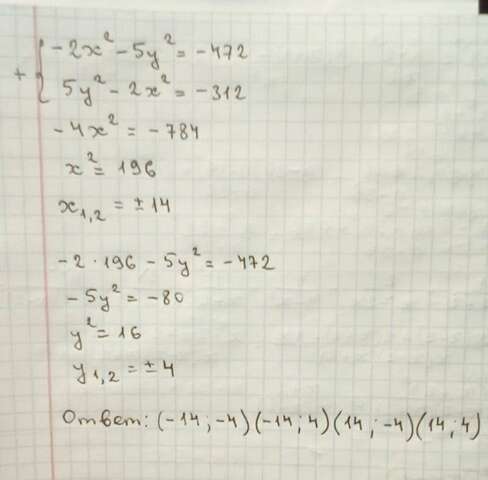 -2x² - 5y² = -472
+ { 5y² - 2x² = -312
-4x² = -784
x² = 196
x₁,₂ = ± 14
-2 · 196 - 5y² = -472
-5y² = -80
y² = 16
y₁,₂ = ± 4
Ответ: (-14; -4) (-14; 4) (14; -4) (14; 4)